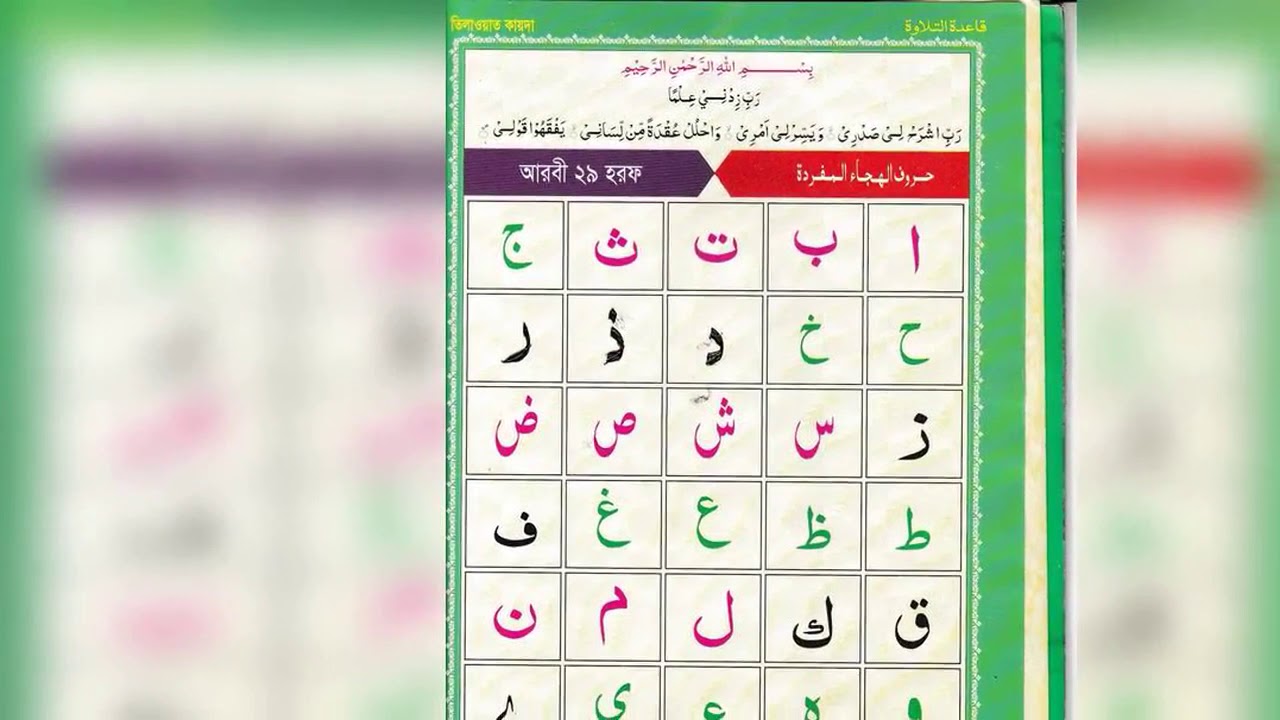 তিলাওয়াত কায়দা قاعدة التلاوة
بِسْمِ اللهِ الرَّحْمٰنِ الرَّحِيْمِ
رَبِّ زِدْنِيْ عِلْمًا
رَبِّ اشْرَحْ لِيْ صَدْرِيْ وَيَسِّرْ لِيْ اَمْرِيْ وَاحْلُلْ عُقْدَةً مِّنْ لِّسَانِيْ يَفْقَهُوْا قَوْلِيْ
আরবী ২৯ হরফ حروف الهجاء المفردة
ا ب ت ث ج
ح خ د ذ ر
ز س ش ص ض
ط ظ ع غ ف
ق ك ل م ن
و ه ء ي